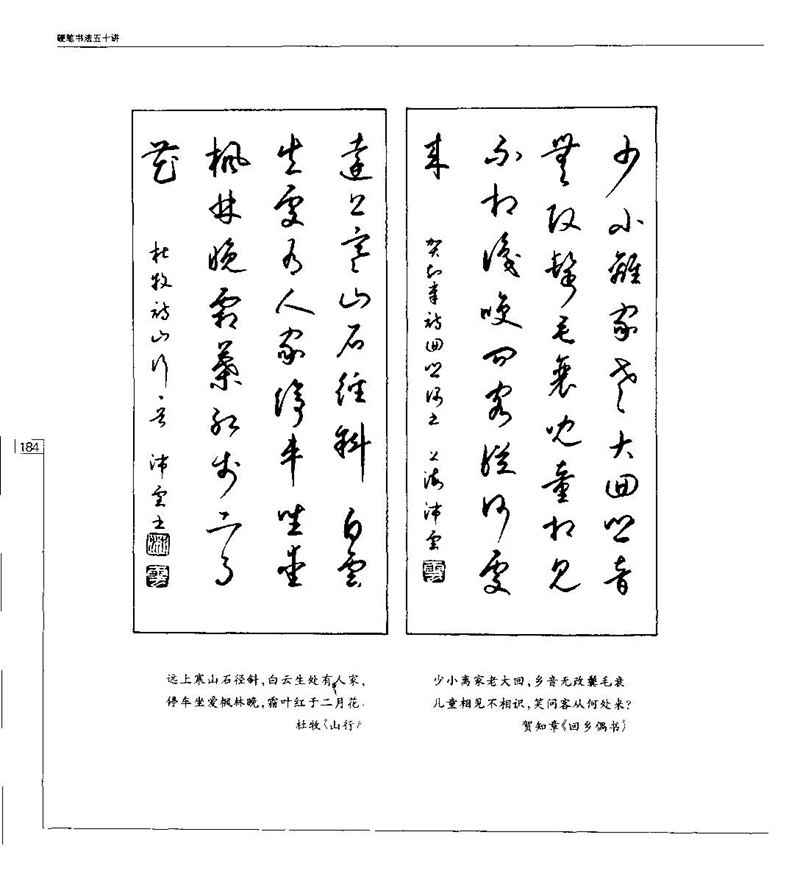 硬笔书法五十讲
少小離家老大回乡音
無改鬢毛衰儿童相見
不相識笑问客從何處
来
賀知章詩回乡偶书 上海沛雲
遠上寒山石徑斜白雲
生處有人家停车坐爱
枫林晚霜葉红於二月
花
杜牧诗山行一首 沛雲书
184
少小离家老大回，乡音无改鬓毛衰
儿童相见不相识，笑问客从何处来?
贺知章《回乡偶书》
远上寒山石径斜，白云生处有人家，
停车坐爱枫林晚，霜叶红于二月花.
杜牧《山行》